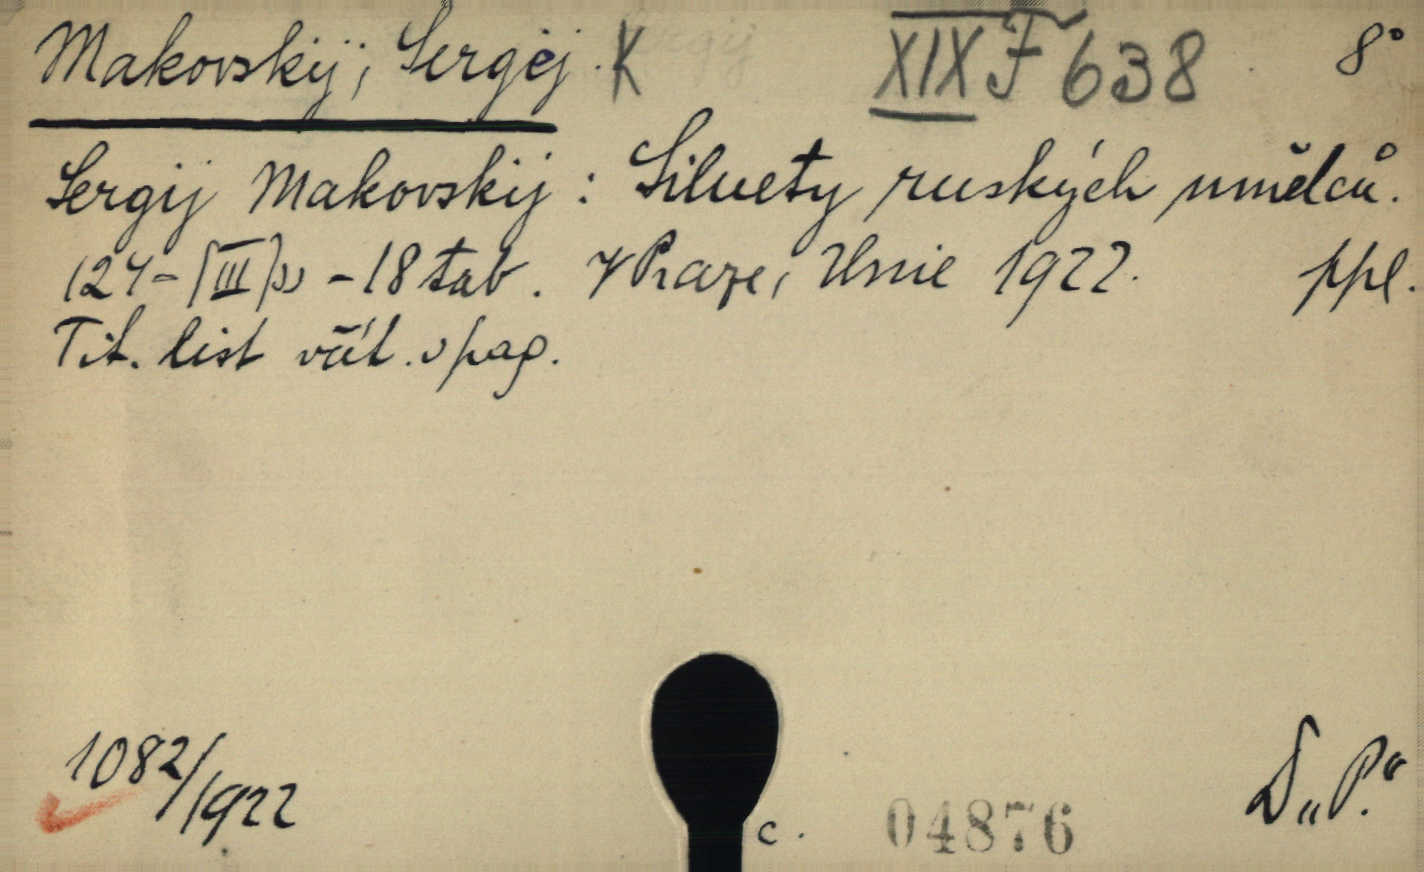 Makovskij, Sergěj. K XIX F 638 8°
Sergij Makovskij: Siluety ruských umělců.
124-[III] ss - 18 tab. V Praze, Unie 1922. ppl.
Tit. list včít. v pag.
1082/1922
c. 04876 D „P.“